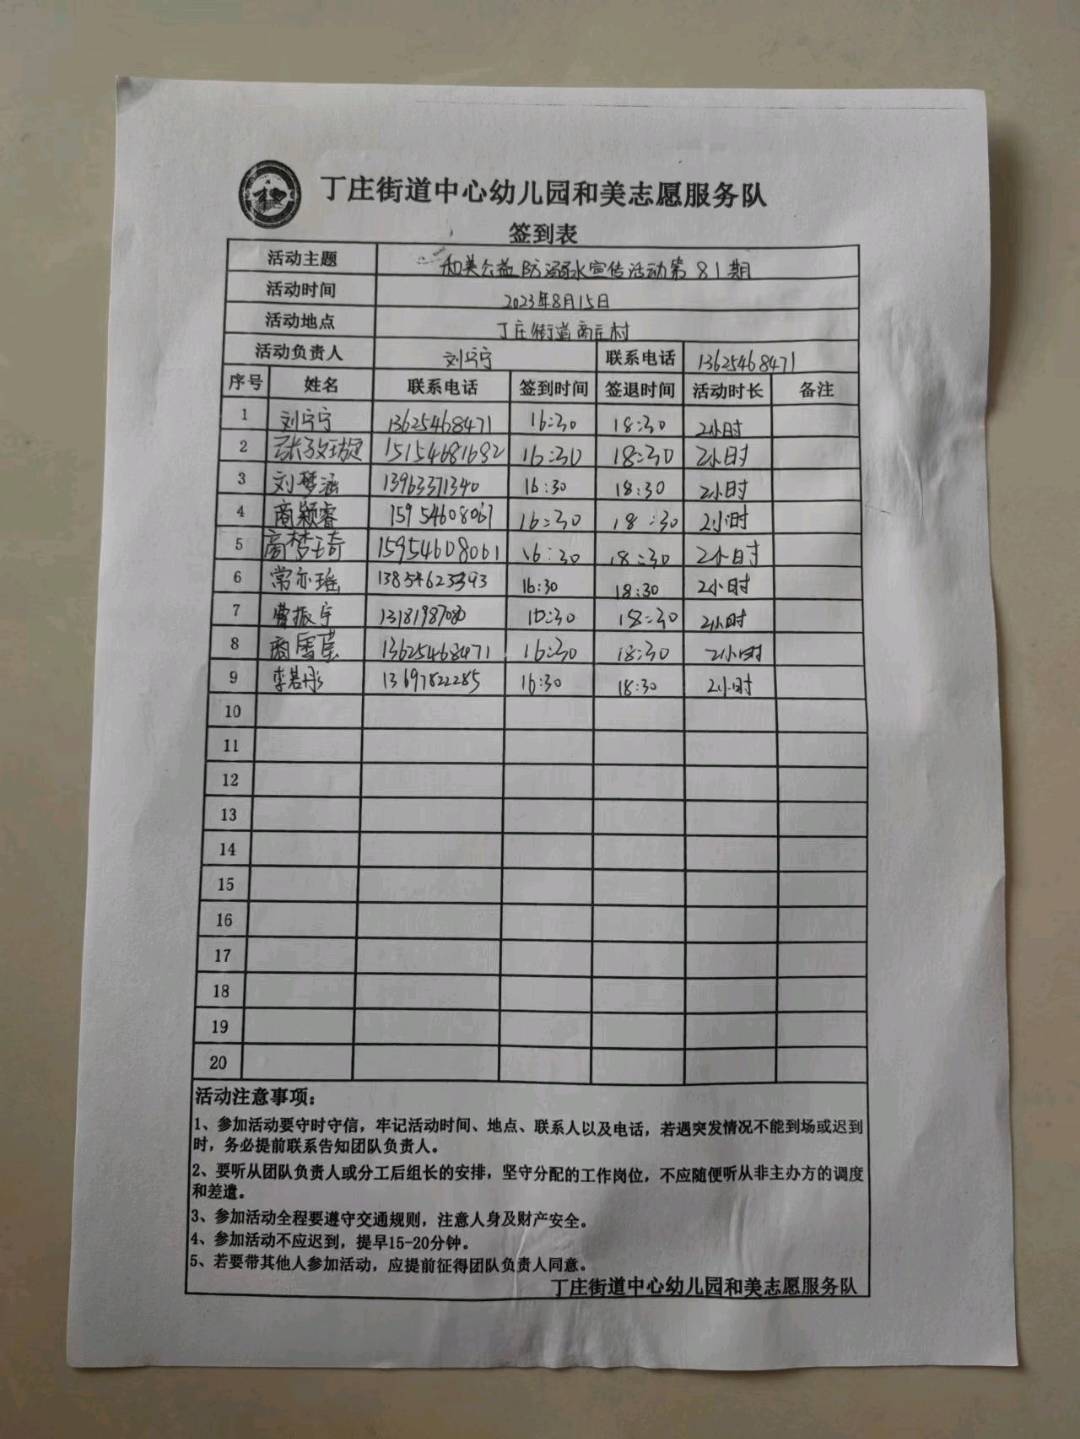 丁庄街道中心幼儿园和美志愿服务队
签到表
活动主题 和美公益防溺水宣传活动第81期
活动时间 2023年8月15日
活动地点 丁庄街道商庄村
活动负责人 刘宁宁 联系电话 13625468471
序号 姓名 联系电话 签到时间 签退时间 活动时长 备注
1 刘宁宁 13625468471 16:30 18:30 2小时
2 15154681682 16:30 18:30 2小时
3 刘梦涵 13963371340 16:30 18:30 2小时
4 商颖睿 15954608061 16:30 18:30 2小时
5 商梦琦 15954608061 16:30 18:30 2小时
6 常亦瑶 13854623393 16:30 18:30 2小时
7 曹振宇 16:30 18:30 2小时
8 13625468471 16:30 18:30 2小时
9 李若彤 13697822285 16:30 18:30 2小时
10
11
12
13
14
15
16
17
18
19
20
活动注意事项：
1、参加活动要守时守信，牢记活动时间、地点、联系人以及电话，若遇突发情况不能到场或迟到
时，务必提前联系告知团队负责人。
2、要听从团队负责人或分工后组长的安排，坚守分配的工作岗位，不应随便听从非主办方的调度
和差遣。
3、参加活动全程要遵守交通规则，注意人身及财产安全。
4、参加活动不应迟到，提早15-20分钟。
5、若要带其他人参加活动，应提前征得团队负责人同意。
丁庄街道中心幼儿园和美志愿服务队